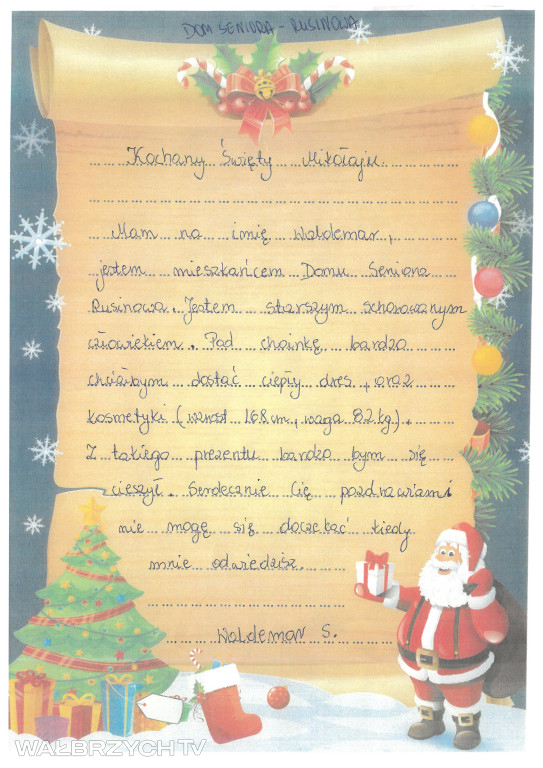 DOM SENIORA - RUSINOWA
Kochany Święty Mikołaju
Mam na imię Waldemar,
jestem mieszkańcem Domu Seniora
Rusinowa. Jestem starszym schorowanym
człowiekiem. Pod choinkę bardzo
chciałbym dostać ciepły dres, oraz
kosmetyki (wzrost 168 cm, waga 82 kg).
Z takiego prezentu bardzo bym się
cieszył. Serdecznie Cię pozdrawiam i
nie mogę się doczekać kiedy
mnie odwiedzisz.
Waldemar S.
WAŁBRZYCH TV